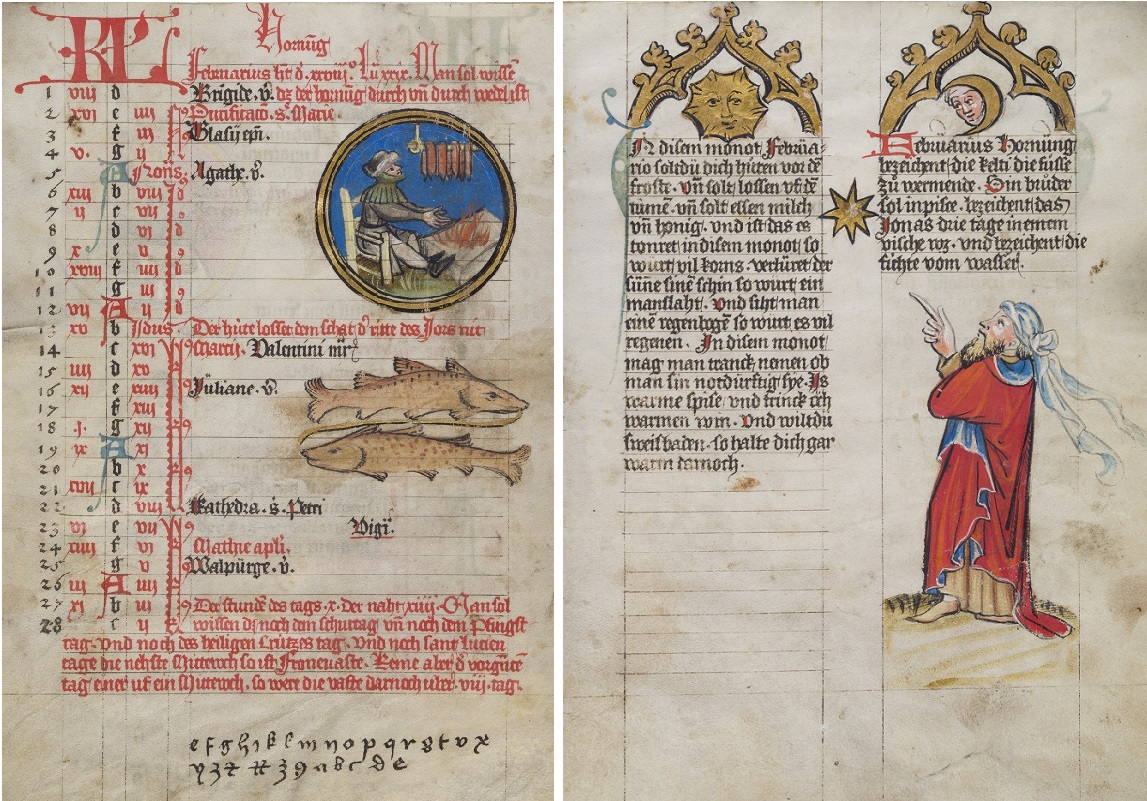 KL Hornūg
Februarius ht d. xxviij. Lū xxix. Man sol wissē
1 viii d Brigide. v. dz der hornūg durch vn̄ durch wedel ist
2 xvi e iiii Purificatio. s. Marie.
3 f iii Blasij ep̄i.
4 v. g ii
5 A Nonꝰ. Agathe. v.
6 xiii b viii
7 ii c vii
8 d vi
9 x e v
10 xviii f iiii
11 g iii
12 vii A ii
13 xv b Idus. Der hūte losset dem schat d' ritte des Jors nit
14 c xvi Marcij. Valentini mr̄
15 iiii d xv
16 xii e xiiii Juliane. v.
17 f xiii
18 j. g xii
19 ix A xi
20 b x
21 xvii c ix
22 d viii Kathedra. s. Petri
23 vi e vii Vigil.
24 xiiii f vi Mathie apl̄i.
25 g v Walpürge. v.
26 iii A iiii
27 xi b iii Der stundē des tags. x. der naht xiiii. Man sol
28 c ii wissen dz noch dem schuttag vn̄ noch dem Pfingst
tag. Vnd noch des heiligen Crützes tag. Vnd noch sant Lucien
tage die nehste Mittewoch so ist Fronevaste. Keme aber d' vorgūtē
tag einer uf ein Mittewch. so were die vaste darnoch uber. viij. tag.
e f g h i k l m n o p q r s t v x
y z
a b c d e
In disem monot Februa-
rio soltdu dich hüten vor dē
froste. Vn̄ solt lossen vf dē
tumē. vn̄ solt essen milch
vn̄ honig. Vnd ist das es
tonret in disem monot so
wurt vil korns. verlüret der
sūne sinē schin so wurt ein
manslaht. Vnd siht man
einē regenbogē so wurt es vil
regenen. In disem monot
mag man tranck nemen ob
man sin notdürftig sye. Is
warme spise vnd trinck och
warmen win. Vnd wiltdu
sweisbaden. so halte dich gar
warm darnoch.
Februarius Hornūng
bezeichent die kelti die füsse
zu wermende. Sin brüder
sol in pisce. bezeichent das
Jonas drie tage in einem
vische wz. vnd bezeichent die
fühte vom wasser.